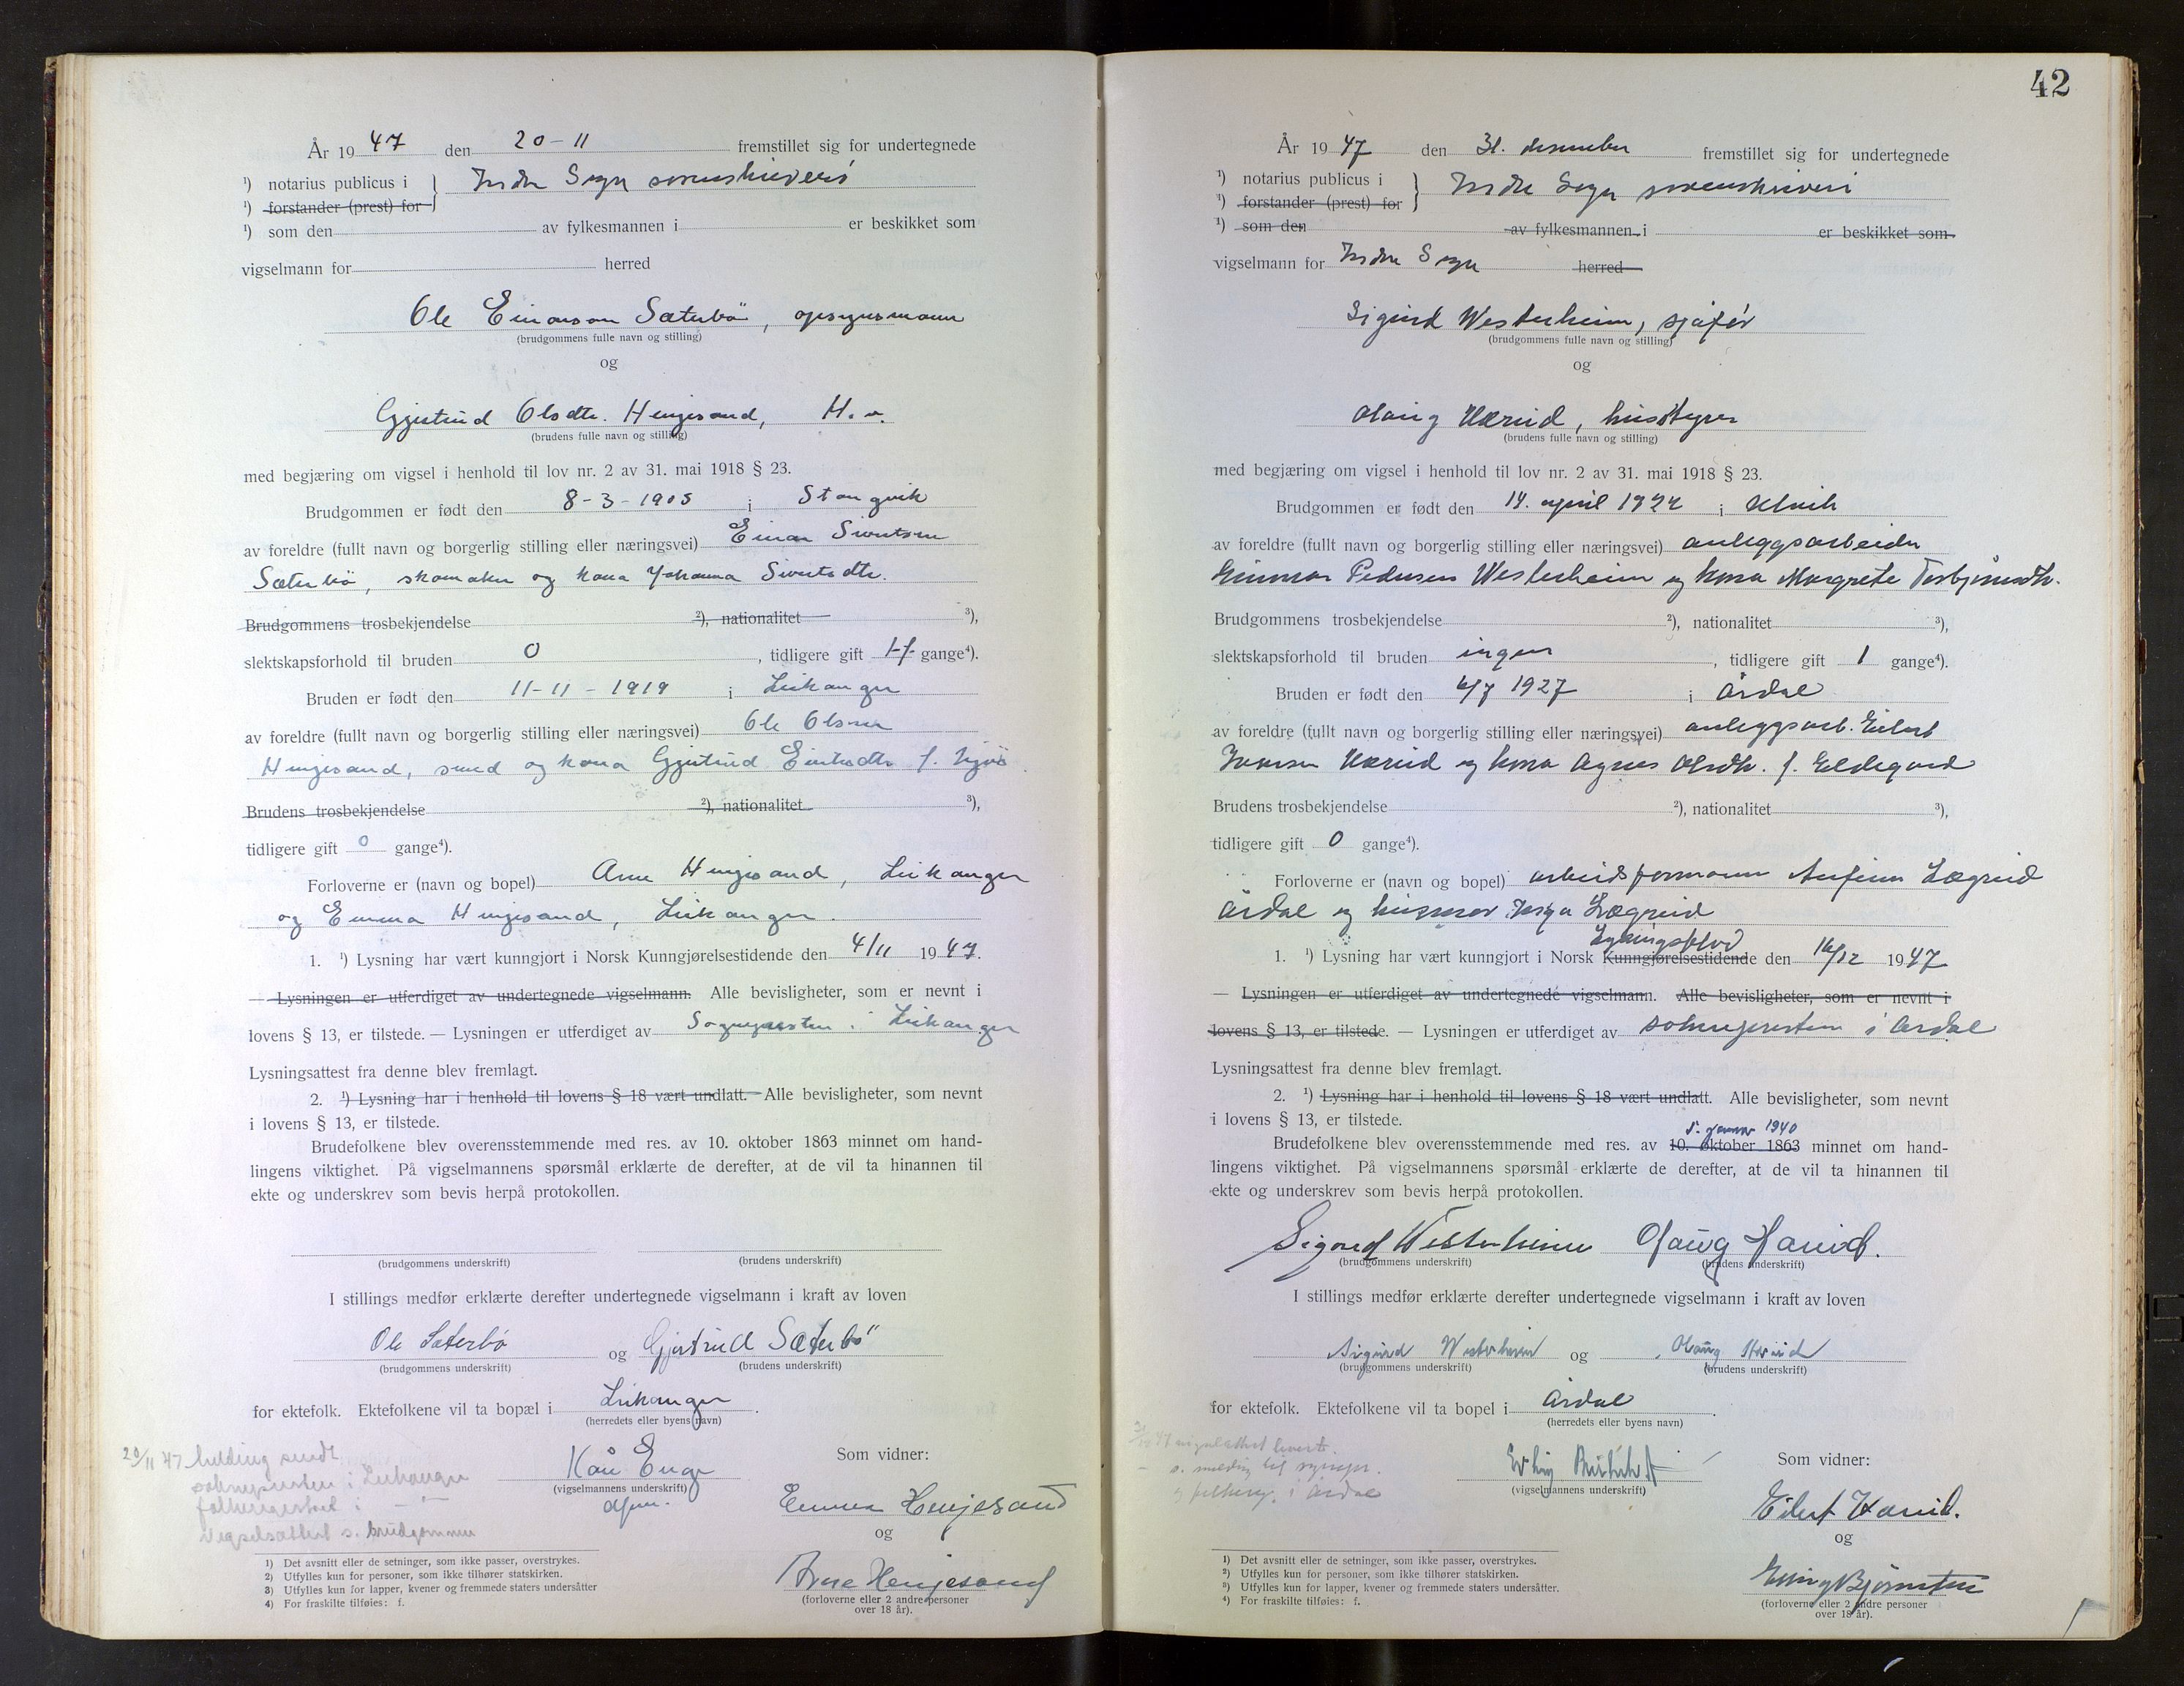 År 19 47 den 20-11 fremstillet sig for undertegnede
¹) notarius publicus i } Indre Sogn sorenskriveri
¹) forstander (prest) for
¹) som den av fylkesmannen i er beskikket som
vigselmann for herred
Ole Einarson Sæterbö, opsynsmann
(brudgommens fulle navn og stilling)
og
Gjertrud Olsdtr. Henjesand, H.
(brudens fulle navn og stilling)
med begjæring om vigsel i henhold til lov nr. 2 av 31. mai 1918 § 23.
Brudgommen er født den 8-3-1905 i Stangvik
av foreldre (fullt navn og borgerlig stilling eller næringsvei) Einar Sivertsen
Sæterbö, skomaker og kona Johanna Sivertsdtr.
Brudgommens trosbekjendelse ²), nationalitet ³),
slektskapsforhold til bruden 0, tidligere gift 1 f. gange⁴).
Bruden er født den 11-11-1919 i Leikanger
av foreldre (fullt navn og borgerlig stilling eller næringsvei) Ole Olsen
Henjesand, smed og kona Gjertrud f.
Brudens trosbekjendelse ²), nationalitet ³),
tidligere gift 0 gange⁴).
Forloverne er (navn og bopel) Arne Henjesand, Leikanger
og Emma Henjesand, Leikanger.
1. ¹) Lysning har vært kunngjort i Norsk Kunngjørelsestidende den 4/11 1947.
— Lysningen er utferdiget av undertegnede vigselmann. Alle bevisligheter, som er nevnt i
lovens § 13, er tilstede. — Lysningen er utferdiget av Sogneprsten i Leikanger
Lysningsattest fra denne blev fremlagt.
2. ¹) Lysning har i henhold til lovens § 18 vært undlatt. Alle bevisligheter, som nevnt
i lovens § 13, er tilstede.
Brudefolkene blev overensstemmende med res. av 10. oktober 1863 minnet om hand-
lingens viktighet. På vigselmannens spørsmål erklærte de derefter, at de vil ta hinannen til
ekte og underskrev som bevis herpå protokollen.
(brudgommens underskrift) (brudens underskrift)
I stillings medfør erklærte derefter undertegnede vigselmann i kraft av loven
Ole Sæterbö og Gjertrud Sæterbö
(brudgommens underskrift) (brudens underskrift)
for ektefolk. Ektefolkene vil ta bopæl i Leikanger.
(herredets eller byens navn)
20/11 47 melding sendt
sokneprsten i Leikanger
folkeregisteret i —"—
Vigselsattest s. brudgommen
Kåre Enge
(vigselmannens underskrift)
Som vidner:
Emma Henjesand
og
Arne Henjesand
(forloverne eller 2 andre personer
over 18 år).
1) Det avsnitt eller de setninger, som ikke passer, overstrykes.
2) Utfylles kun for personer, som ikke tilhører statskirken.
3) Utfylles kun for lapper, kvener og fremmede staters undersåtter
4) For fraskilte tilføies: f.
42
År 19 47 den 31. desember fremstillet sig for undertegnede
¹) notarius publicus i } Indre Sogn sorenskriveri
¹) forstander (prest) for
¹) som den av fylkesmannen i er beskikket som
vigselmann for Indre Sogn herred
Sigurd Westerheim, sjåfør
(brudgommens fulle navn og stilling)
og
Olaug Hæreid, husstyrer
(brudens fulle navn og stilling)
med begjæring om vigsel i henhold til lov nr. 2 av 31. mai 1918 § 23.
Brudgommen er født den 14. april 1922 i Ulvik
av foreldre (fullt navn og borgerlig stilling eller næringsvei) anleggsarbeider
Gunnar Pedersen Westerheim og kona Margrete Torbjørnsdtr.
Brudgommens trosbekjendelse ²), nationalitet ³),
slektskapsforhold til bruden ingen, tidligere gift 1 gange⁴).
Bruden er født den 6/7 1927 i Årdal
av foreldre (fullt navn og borgerlig stilling eller næringsvei) anleggsarb. Eilert
Iversen Hæreid og kona Agnes Olsdtr. f. Eldegard
Brudens trosbekjendelse ²), nationalitet ³),
tidligere gift 0 gange⁴).
Forloverne er (navn og bopel) arbeidsformann Anfinn Lægreid
Årdal og husmor Inga Lægreid
Lysningsblad
1. ¹) Lysning har vært kunngjort i Norsk Kunngjørelsestidende den 16/12 1947
— Lysningen er utferdiget av undertegnede vigselmann. Alle bevisligheter, som er nevnt i
lovens § 13, er tilstede. — Lysningen er utferdiget av soknepresten i Årdal
Lysningsattest fra denne blev fremlagt.
2. ¹) Lysning har i henhold til lovens § 18 vært undlatt. Alle bevisligheter, som nevnt
i lovens § 13, er tilstede.
5. januar 1940
Brudefolkene blev overensstemmende med res. av 10. oktober 1863 minnet om hand-
lingens viktighet. På vigselmannens spørsmål erklærte de derefter, at de vil ta hinannen til
ekte og underskrev som bevis herpå protokollen.
Sigurd Westerheim Olaug Hæreid.
(brudgommens underskrift) (brudens underskrift)
I stillings medfør erklærte derefter undertegnede vigselmann i kraft av loven
Sigurd Westerheim og Olaug Hæreid
(brudgommens underskrift) (brudens underskrift)
for ektefolk. Ektefolkene vil ta bopel i Årdal.
(herredets eller byens navn)
47 vigselattest levert.
s. melding til sognepr.
og folkereg. i Årdal
Erling
(vigselmannens underskrift)
Som vidner:
Eilert Hæreid.
og
(forloverne eller 2 andre personer
over 18 år).
¹) Det avsnitt eller de setninger, som ikke passer, overstrykes.
²) Utfylles kun for personer, som ikke tilhører statskirken.
³) Utfylles kun for lapper, kvener og fremmede staters undersåtter.
⁴) For fraskilte tilføies: f.